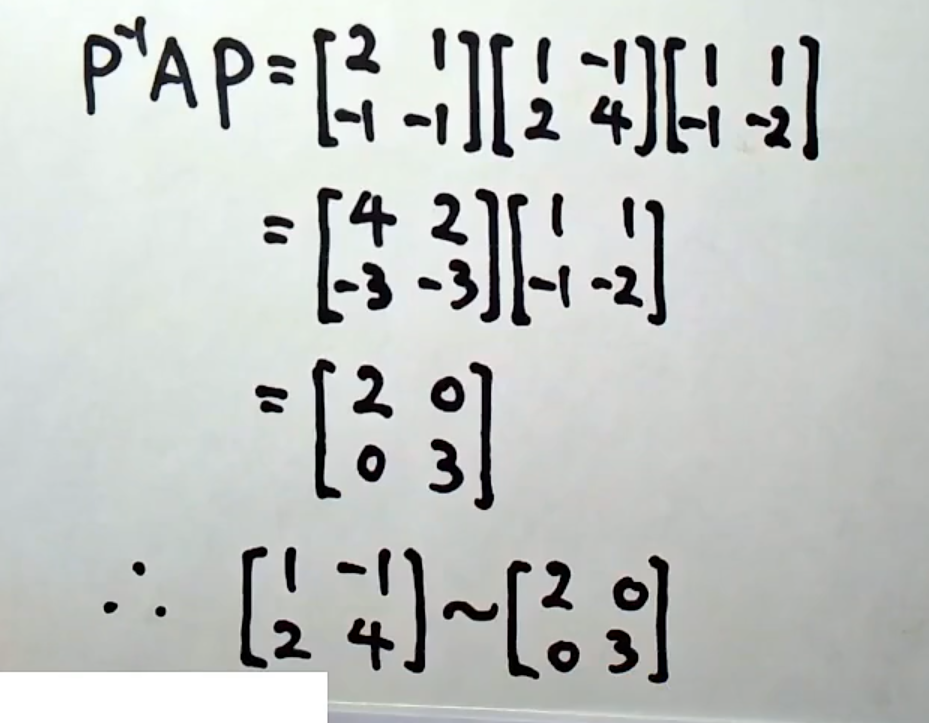 P⁻¹AP = [2 1; -1 -1][1 -1; 2 4][1 1; -1 -2]
= [4 2; -3 -3][1 1; -1 -2]
= [2 0; 0 3]
∴ [1 -1; 2 4] ~ [2 0; 0 3]